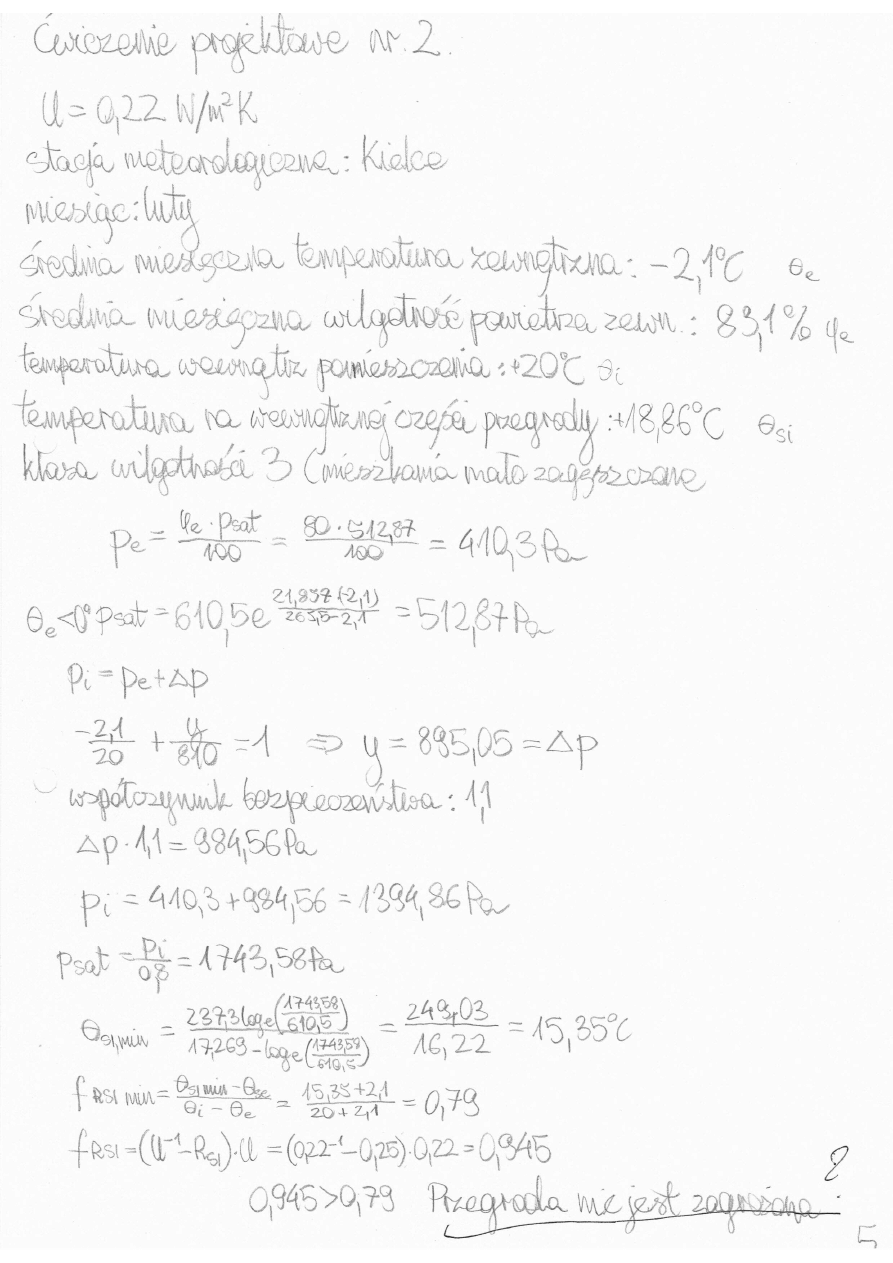 Ćwiczenie projektowe nr. 2.
U = 0,22 W/m²K
stacja meteorologiczna: Kielce
miesiąc: luty
średnia miesięczna temperatura zewnętrzna: -2,1°C θe
średnia miesięczna wilgotność powietrza zewn.: 83,1% φe
temperatura wewnątrz pomieszczenia: +20°C θi
temperatura na wewnętrznej części przegrody: +18,86°C θsi
klasa wilgotności 3 (mieszkania mało zagęszczone
pe = φe · psat / 100 = 80 · 512,87 / 100 = 410,3 Pa
θe<0° psat = 610,5e^(21,837(-2,1) / 263,5-2,1) = 512,87 Pa
pi = pe + Δp
-2,1/20 + y/810 = 1 ⇒ y = 895,05 = Δp
współczynnik bezpieczeństwa: 1,1
Δp · 1,1 = 984,56 Pa
pi = 410,3 + 984,56 = 1394,86 Pa
psat = pi/0,8 = 1743,58 Pa
θsi,min = 237,3 loge(1743,58/610,5) / 17,269 - loge(1743,58/610,5) = 249,03/16,22 = 15,35°C
fRSI min = θSI min - θse / θi - θe = 15,35+2,1 / 20+2,1 = 0,79
fRSI = (U⁻¹ - RSI) · U = (0,22⁻¹ - 0,25) · 0,22 = 0,945
0,945 > 0,79 Przegroda nie jest zagrożona ?
5